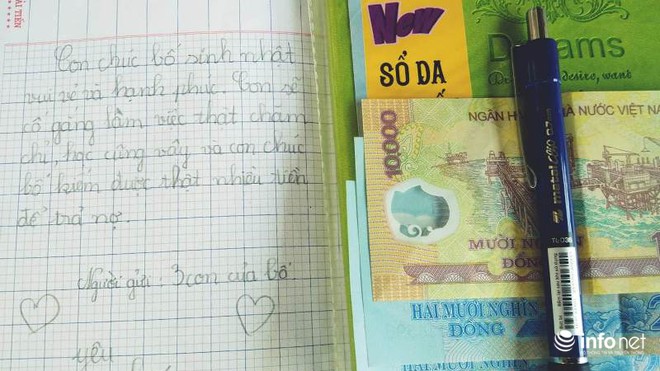 ÀI TIẾN
Con chúc bố sinh nhật
vui vẻ và hạnh phúc. Con sẽ
cố gắng làm việc thật chăm
chỉ, học cũng vậy và con chúc
bố kiếm được thật nhiều tiền
để trả nợ.
Người gửi: 3 con của bố
yêu
Now
SỔ DA
D ams
desire, want
NGÂN H À NƯỚC VIỆT NA
10.000
MƯỜI N
ĐỒNG
HAI MƯƠI NGHÌN
ĐỒNG
HAI MƯƠI NGHÌN
infonet